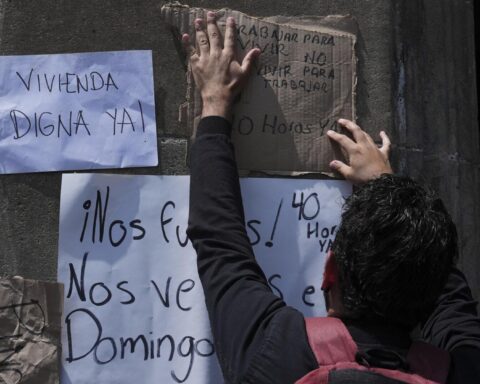 VIVIENDA
DIGNA YA!
TRABAJAR PARA
VIVIR NO
VIVIR PARA
TRABAJAR
40 Horas YA
¡Nos fu !
40
Horas
YA
Nos ve e
Domingo